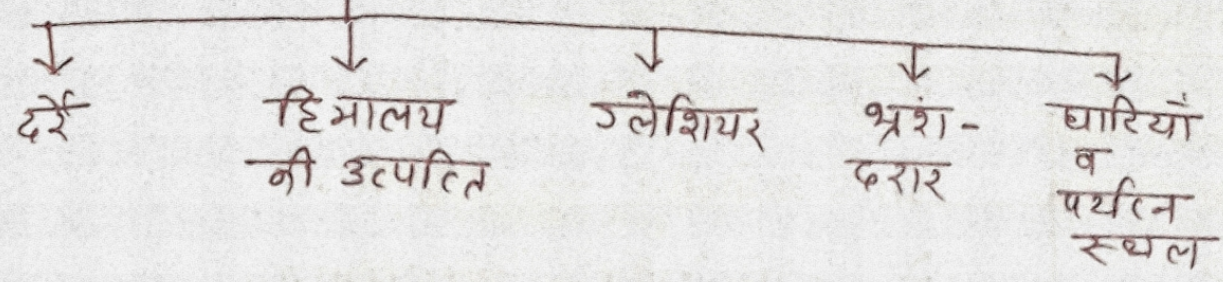 दर्रे
हिमालय
की उत्पत्ति
ग्लेशियर
भ्रंश-
दरार
घाटियाँ
व
पर्यटन
स्थल